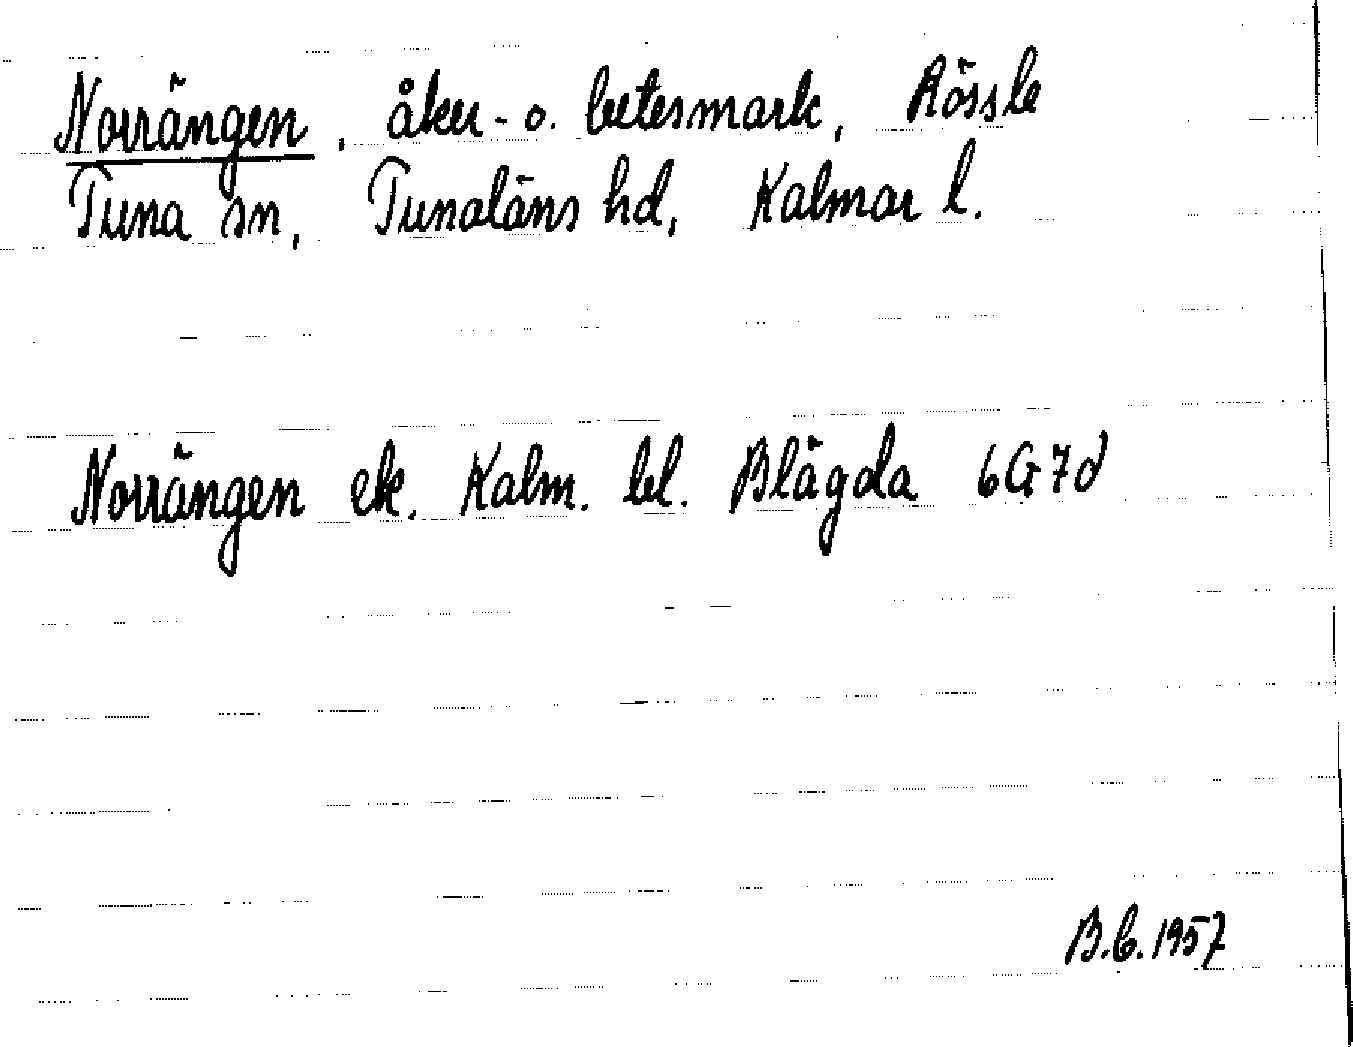 Norrängen, åker- o. betesmark, Rössle
Tuna sn, Tunaläns hd, Kalmar l.
Norrängen ek. Kalm. bl. Blägda 6G7d
B.b.1957